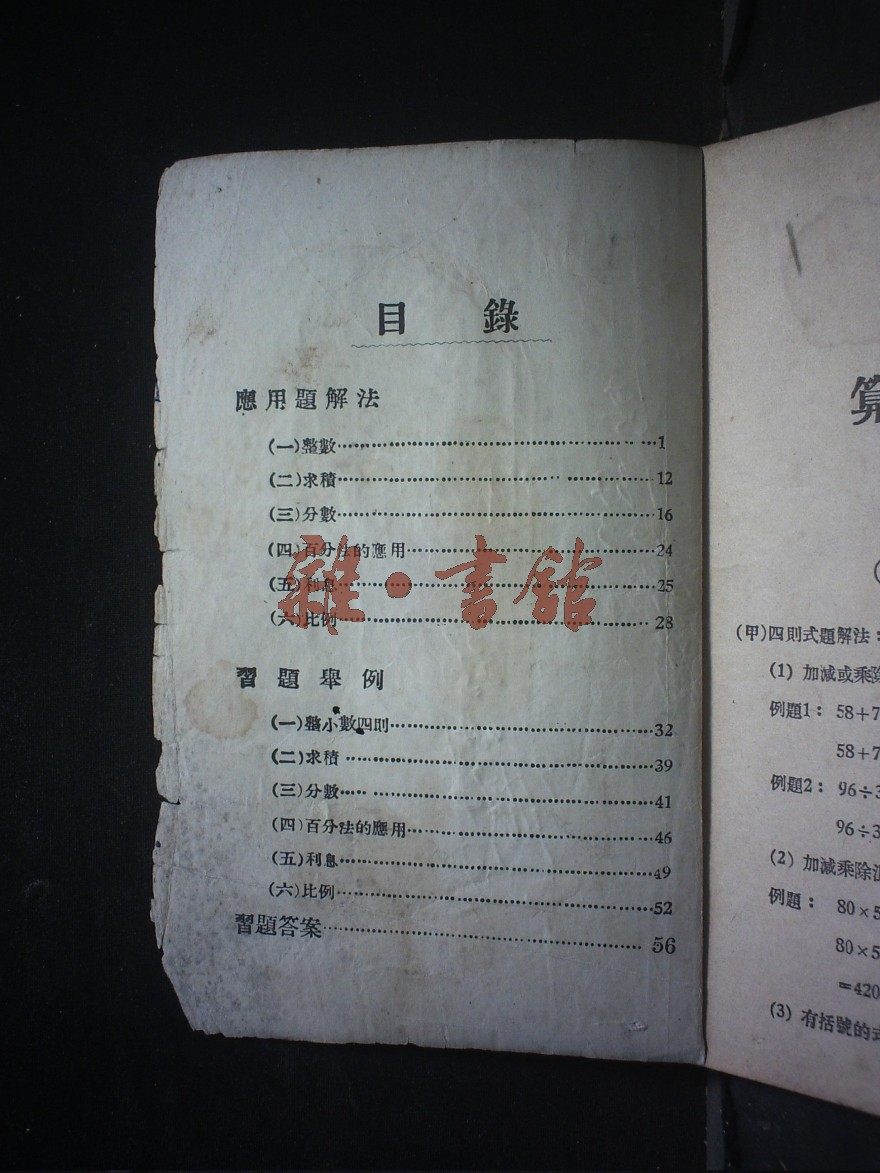 目錄
應用題解法
(一)整數……1
(二)求積……12
(三)分數……16
(四)百分法的應用……24
(五)利息……25
(六)比例……28
雜·書館
習題舉例
(一)整小數四則……32
(二)求積……39
(三)分數……41
(四)百分法的應用……46
(五)利息……49
(六)比例……52
習題答案……56
算
(甲)四則式題解法：
(1) 加減或乘除
例題1： 58+7
58+7
例題2： 96÷3
96÷3
(2) 加減乘除
例題： 80×5
80×5
=420
(3) 有括號的式